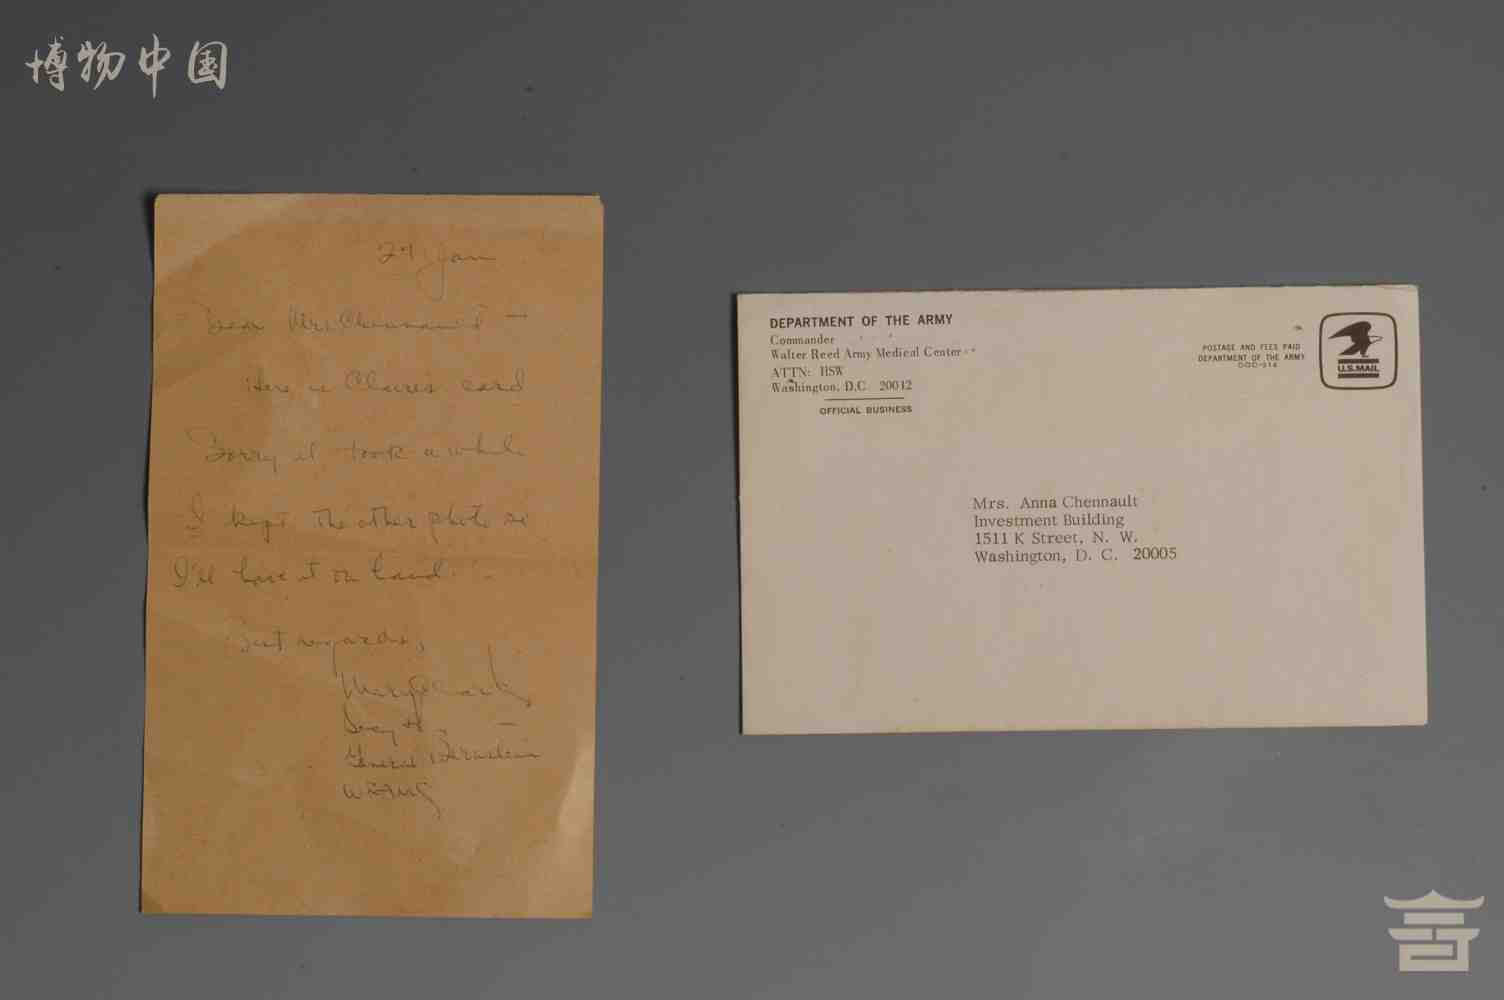 博物中国
27 Jan
Dear Mrs. Chennault —
Here is Claire's card
Sorry it took a while
I kept the other photo so
I'll have it on hand.
Best regards,
Mary
Secy to
General Bernstein
WRAMC
DEPARTMENT OF THE ARMY
Commander
Walter Reed Army Medical Center
ATTN: HSW
Washington, D.C. 20012
OFFICIAL BUSINESS
POSTAGE AND FEES PAID
DEPARTMENT OF THE ARMY
DOD-314
U.S.MAIL
Mrs. Anna Chennault
Investment Building
1511 K Street, N. W.
Washington, D. C. 20005